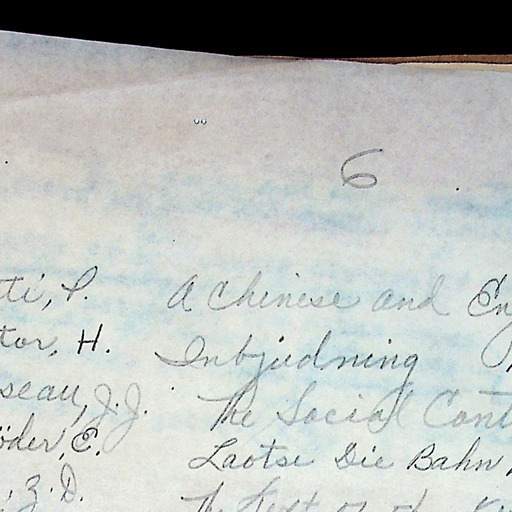 6
ti, P. A Chinese and En
tor, H. Inbjudning
seau, J.J. The Social Cont
öder, E. Laotse Die Bahn
, Z.D.